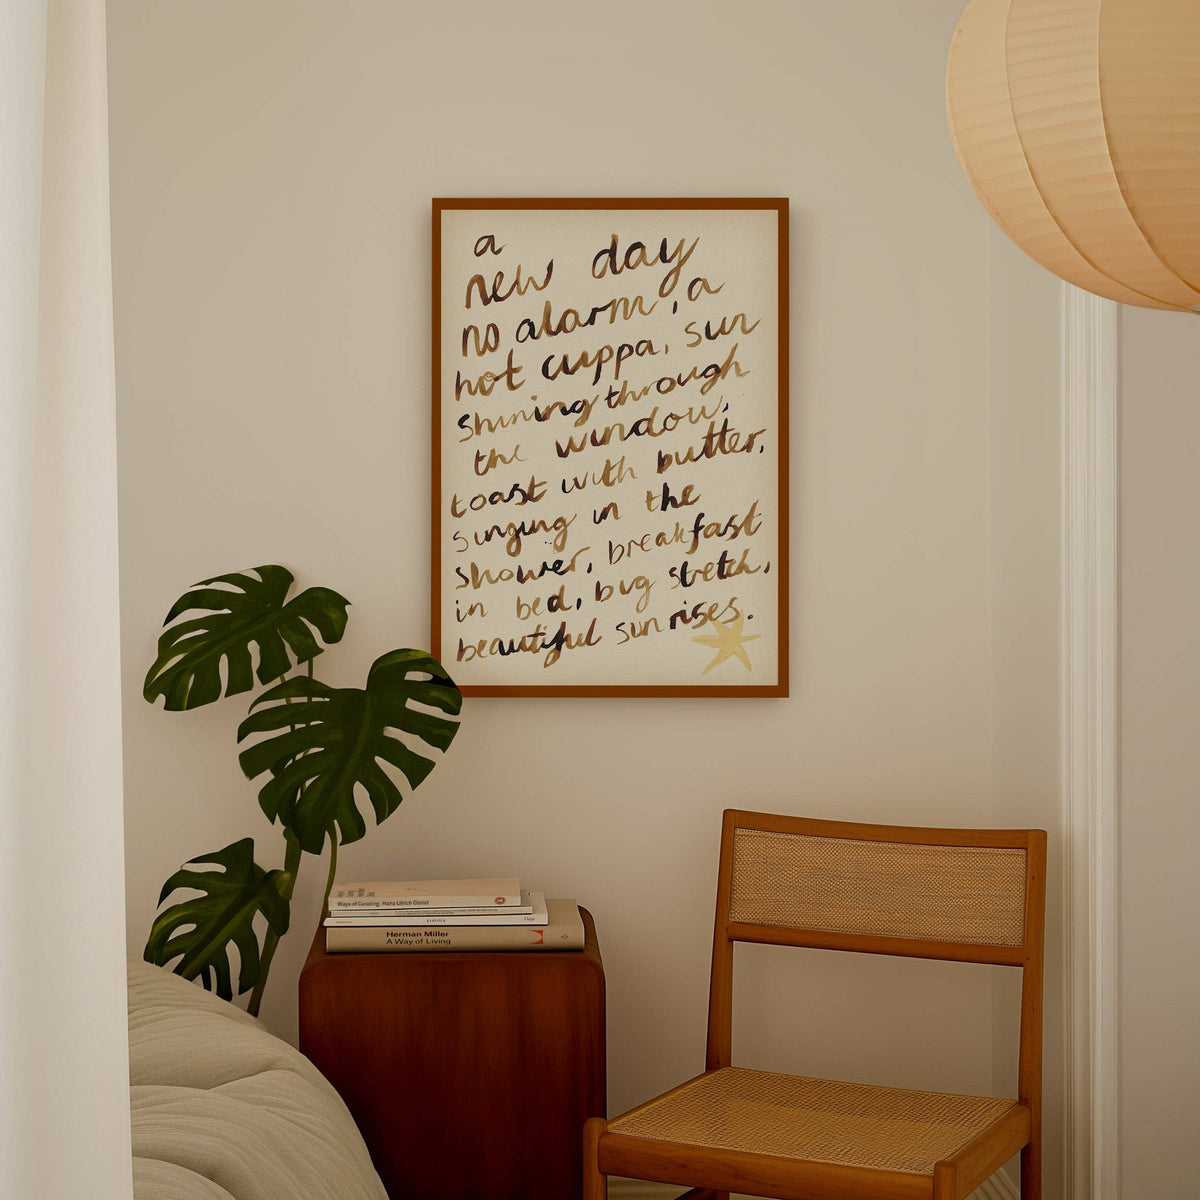 a
new day
no alarm, a
hot cuppa, sun
shining through
the window,
toast with butter,
singing in the
shower, breakfast
in bed, big stretch,
beautiful sun rises.
Ways of Curating. Hans Ulrich Obrist
KINFOLK
Herman Miller
A Way of Living